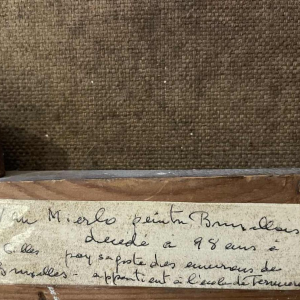 Van Mierlo peintre Bruxellois
décédé a 98 ans à
Gilles paysagiste des environs de
Bruxelles - appartient à l'école de Tervueren